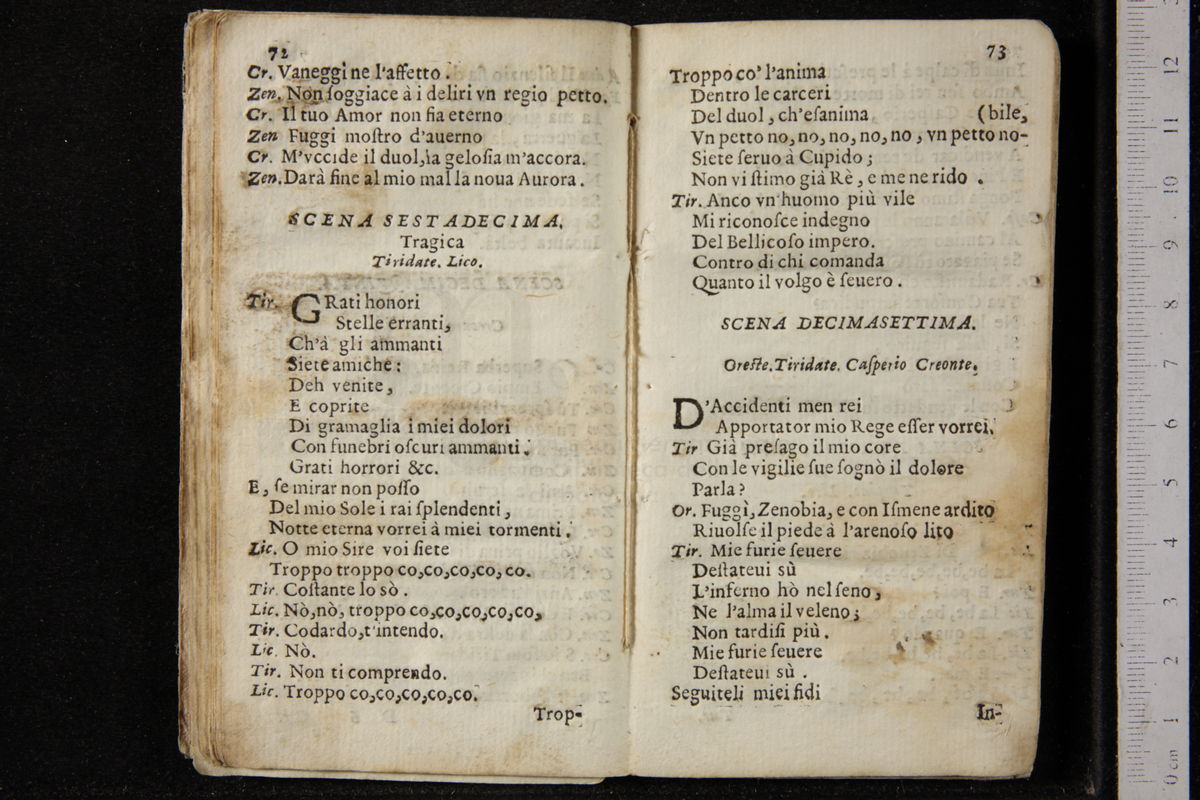 72
Cr. Vaneggi ne l'affetto.
Zen. Non ſoggiace à i deliri vn regio petto.
Cr. Il tuo Amor non fia eterno
Zen Fuggi moſtro d'auerno
Cr. M'vccide il duol, la geloſia m'accora.
Zen. Darà fine al mio mal la noua Aurora.
SCENA SESTADECIMA.
Tragica
Tiridate. Lico.
Tir. GRati honori
Stelle erranti,
Ch'à gli ammanti
Siete amiche:
Deh venite,
E coprite
Di gramaglia i miei dolori
Con funebri oſcuri ammanti.
Grati horrori &c.
E, ſe mirar non poſſo
Del mio Sole i rai ſplendenti,
Notte eterna vorrei à miei tormenti.
Lic. O mio Sire voi ſiete
Troppo troppo co,co,co,co, co.
Tir. Coſtante lo sò.
Lic. Nò,nò, troppo co,co,co,co,co,
Tir. Codardo,t'intendo.
Lic. Nò.
Tir. Non ti comprendo.
Lic. Troppo co,co,co,co,co.
Trop-
73
Troppo co' l'anima
Dentro le carceri
Del duol, ch'eſanima (bile,
Vn petto no, no, no, no, no, vn petto no-
Siete ſeruo à Cupido;
Non vi ſtimo già Rè, e me ne rido.
Tir. Anco vn'huomo più vile
Mi riconoſce indegno
Del Bellicoſo impero.
Contro di chi comanda
Quanto il volgo è ſeuero.
SCENA DECIMASETTIMA.
Oreſte. Tiridate. Caſperio Creonte.
D'Accidenti men rei
Apportator mio Rege eſſer vorrei.
Tir Già preſago il mio core
Con le vigilie ſue ſognò il dolore
Parla?
Or. Fuggì, Zenobia, e con Iſmene ardito
Riuolſe il piede à l'arenoſo lito
Tir. Mie furie ſeuere
Deſtateui sù
L'inferno hò nel ſeno,
Ne l'alma il veleno;
Non tardiſi più.
Mie furie ſeuere
Deſtateui sù.
Seguiteli miei fidi
In-
0 cm 1 2 3 4 5 6 7 8 9 10 11 12